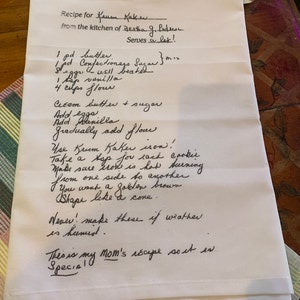 Recipe for Krum Kaker
from the kitchen of Bertha J. Pederson
Serves a lot!
1 pd butter
1 pd Confectionery Sugar } mix
8 eggs - well beated
1 tsp vanilla
4 cups flour
Cream butter + sugar
Add eggs
Add vanilla
Gradually add flour
Use Krum Kake iron!
Take a tsp for each cookie
Make sure iron is hot turning
from one side to another
You want a golden brown
Shape like a cone.
Never! make these if weather
is humid.
This is my Mom's recipe so it is
Special!